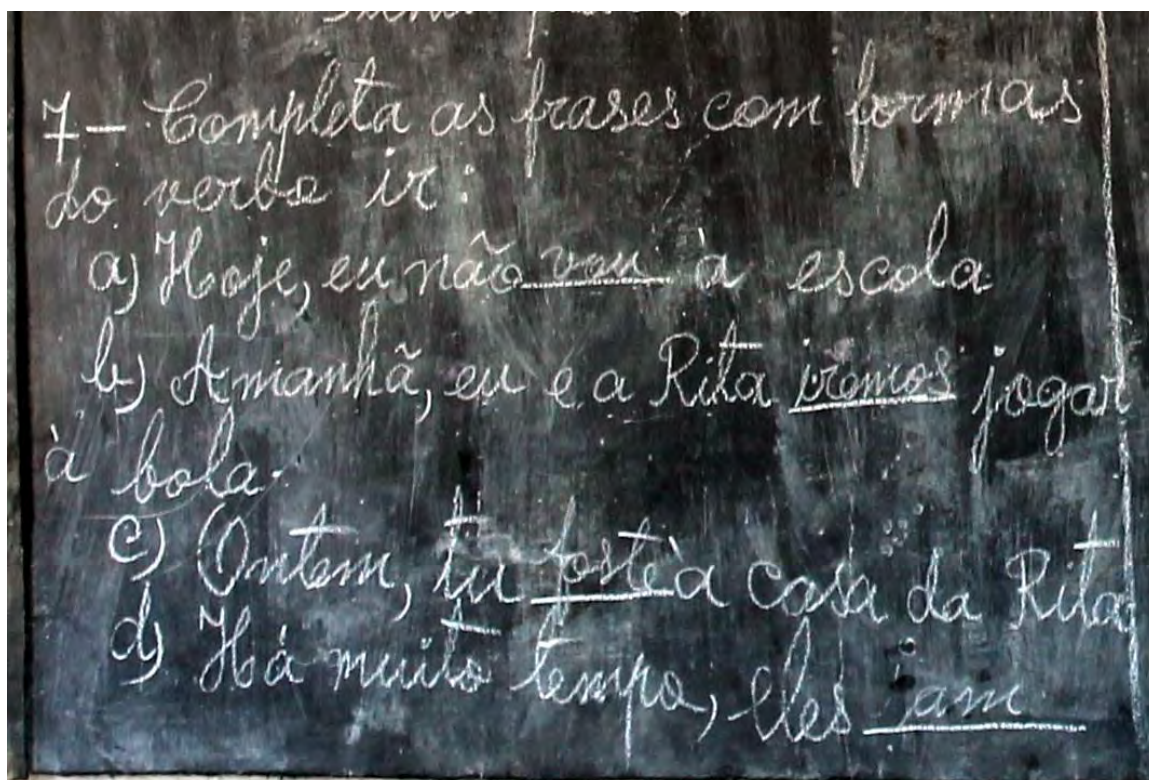 7 - Completa as frases com formas
do verbo ir:
a) Hoje, eu não vou à escola
b) Amanhã, eu e a Rita iremos jogar
à bola.
c) Ontem, tu foste à casa da Rita
d) Há muito tempo, eles iam